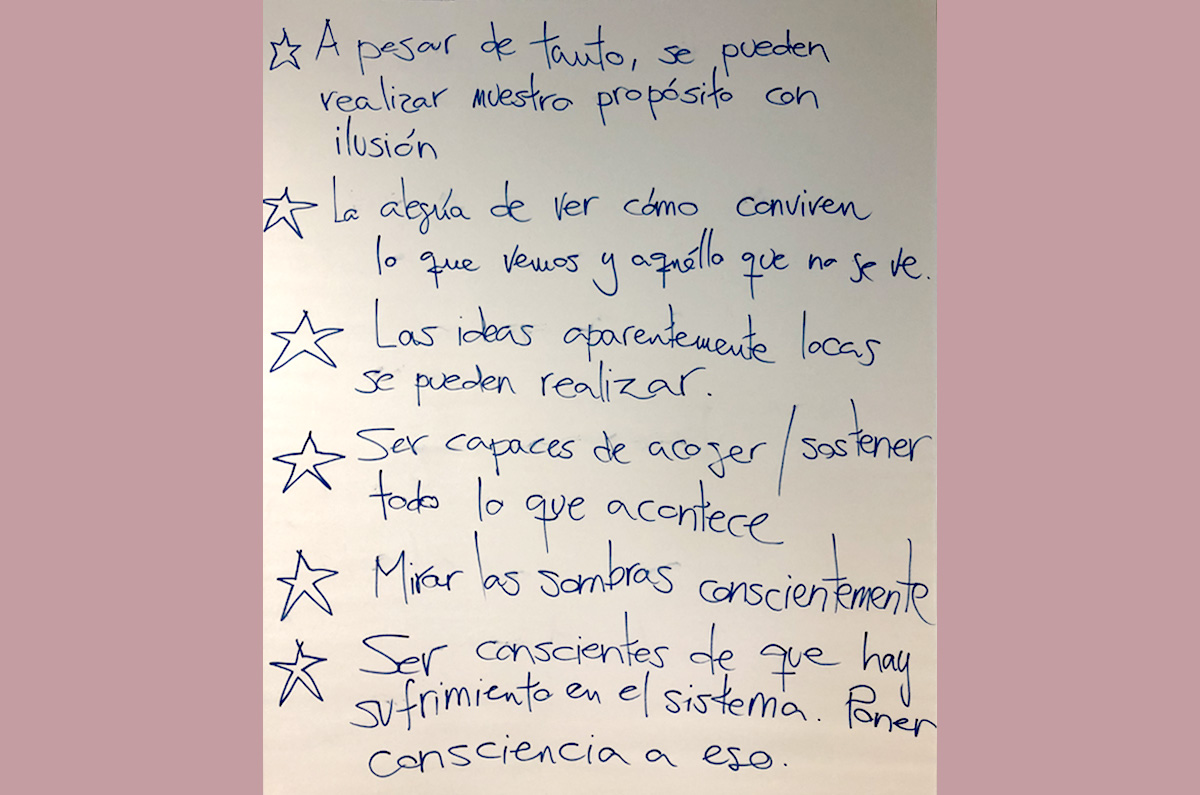 ☆ A pesar de tanto, se pueden
realizar nuestro propósito con
ilusión
☆ La alegría de ver cómo conviven
lo que vemos y aquéllo que no se ve.
☆ Las ideas aparentemente locas
se pueden realizar.
☆ Ser capaces de acoger / sostener
todo lo que acontece
☆ Mirar las sombras conscientemente
☆ Ser conscientes de que hay
sufrimiento en el sistema. Poner
consciencia a eso.